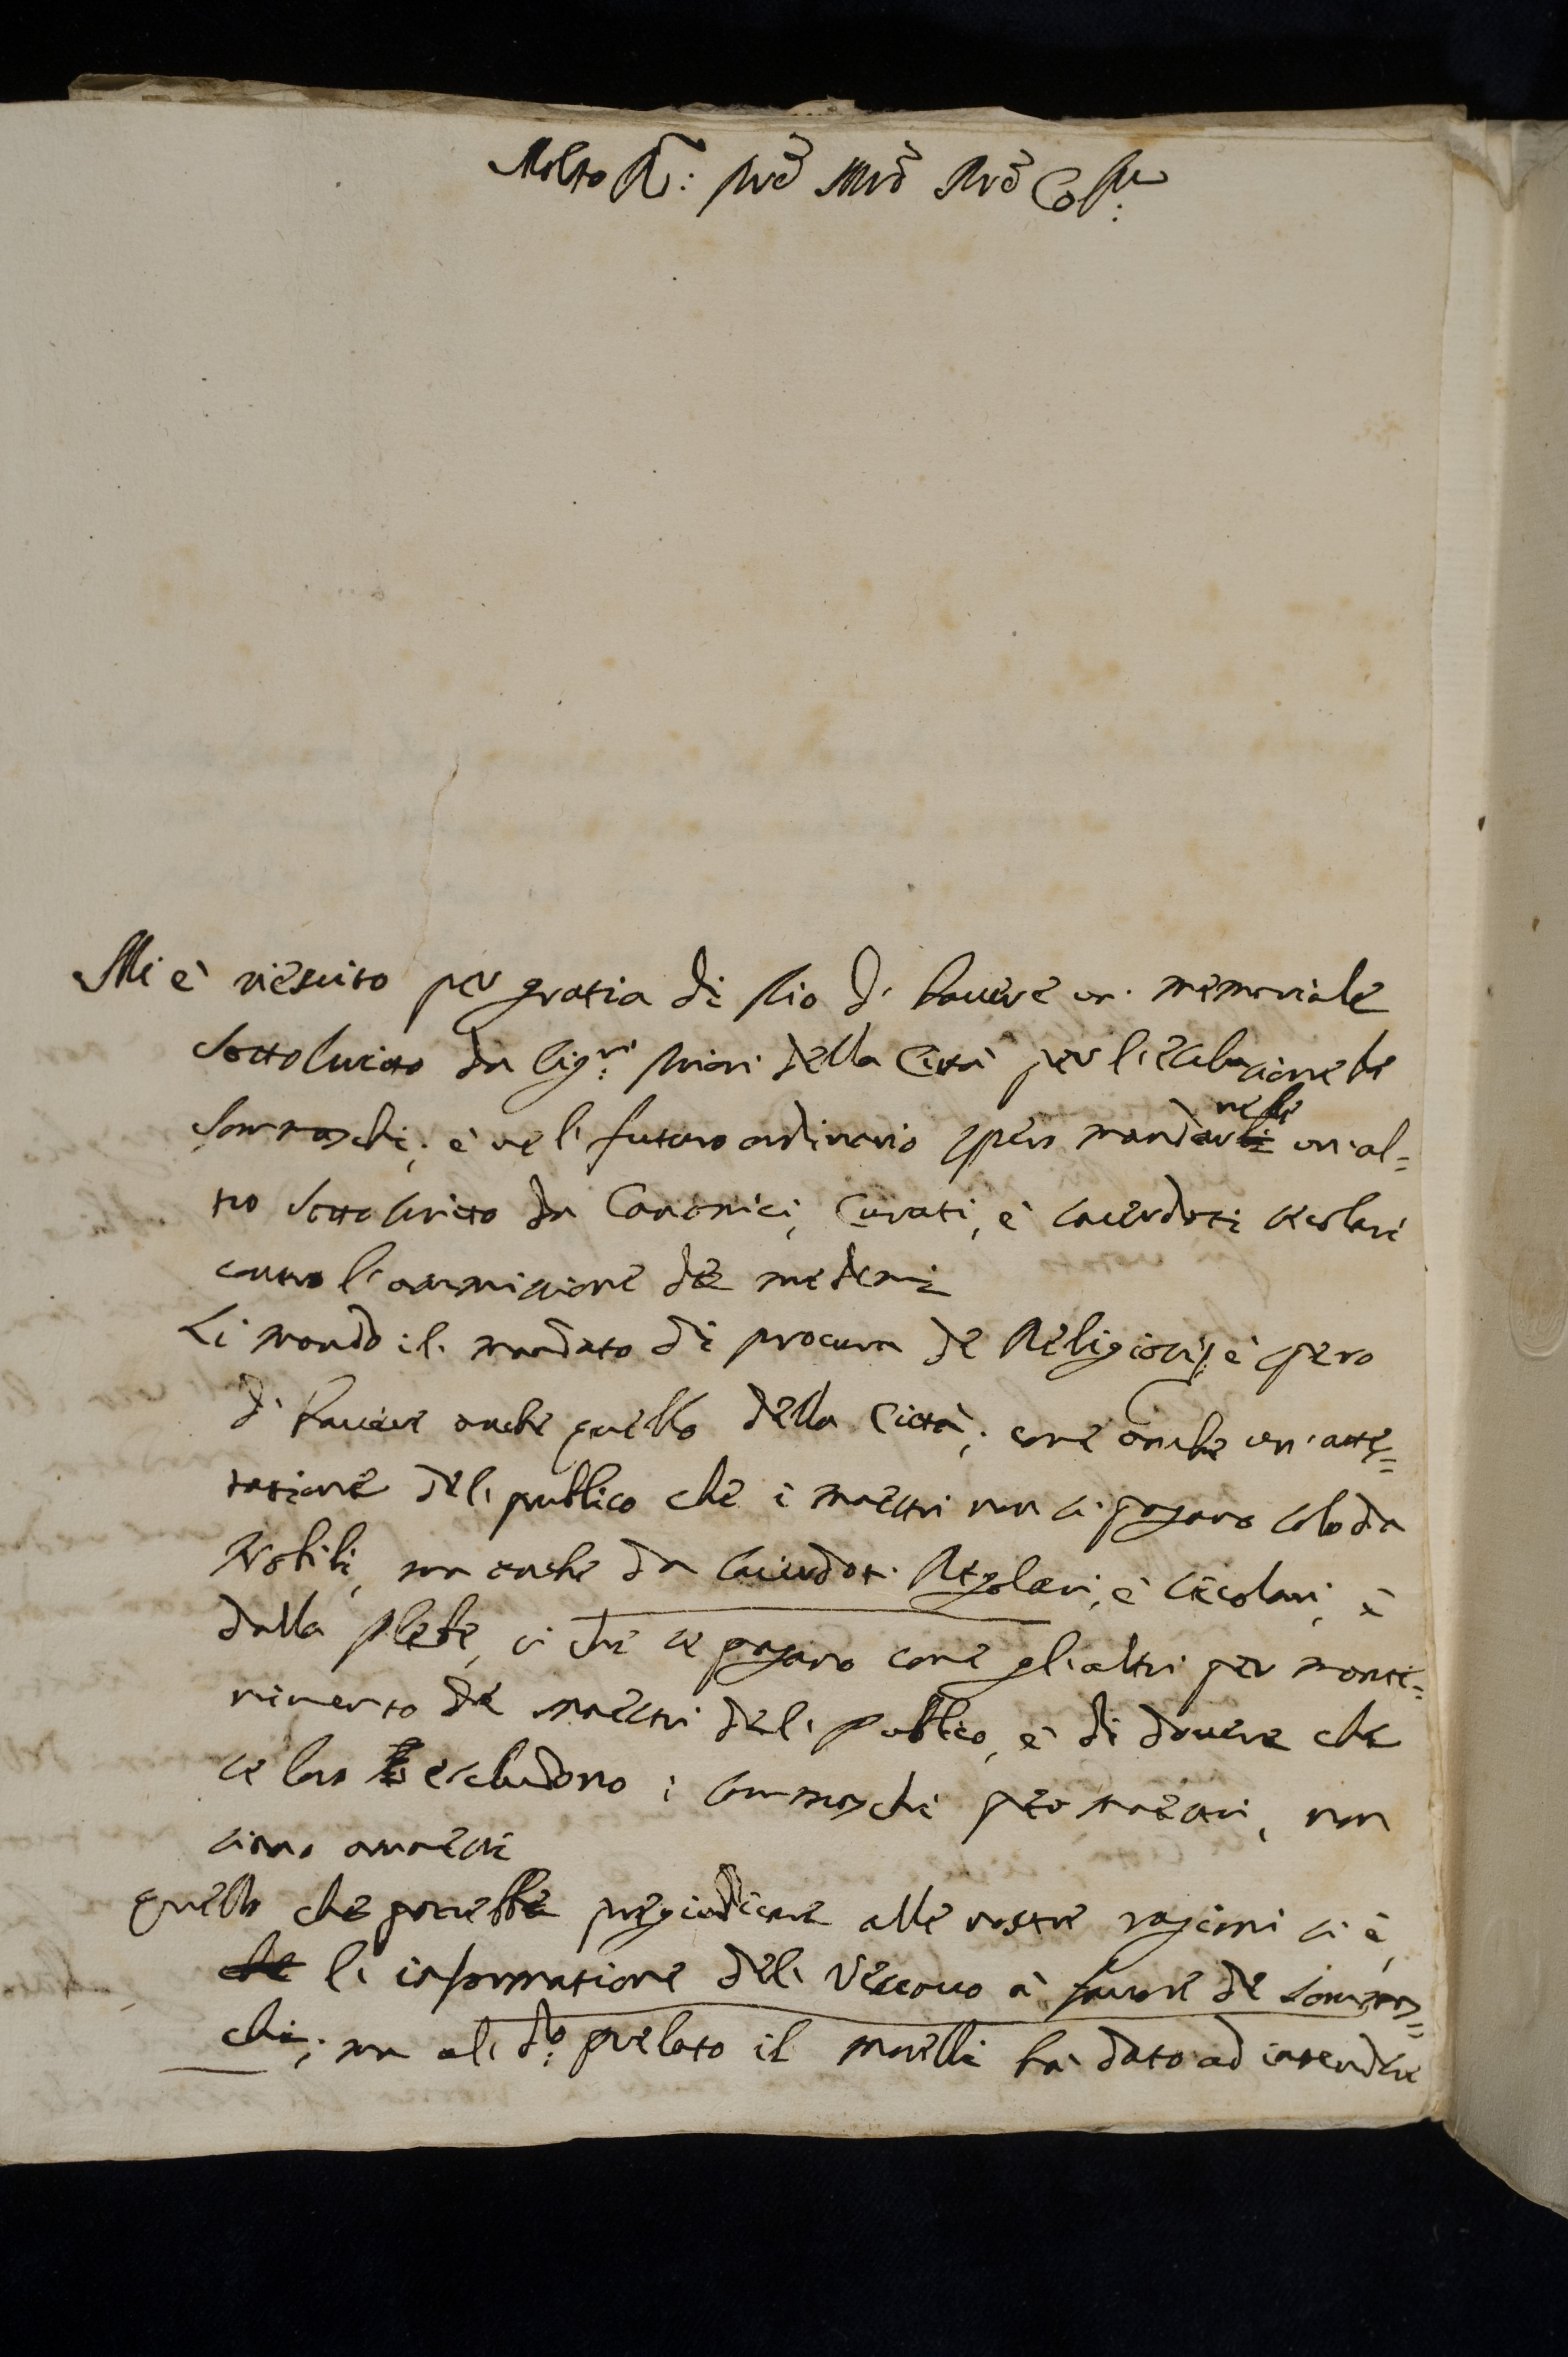 Molto R: Prē Mrō Prō Col:
Mi è riescito per gratia di Dio d'hauere un memoriale
sottoscritto da sig:ri Priori della Città per l'esclusione de
sommaschi; è nel futuro ordinario spero mandarline un'al=
tro sottoscritto da Canonici, Curati, è sacerdoti secolari
contro l'ammissione de medemi
Li mando il mandato di procura de Religiosi; è spero
d'hauere anche quello della Città; come anche un'atte=
statione del publico che i maestri non si pagano solo da
Nobili, ma anche da sacerdoti Regolari, è secolari, è
dalla plebe, si che se pagano come gl'altri per mante=
nimento de maestri del publico, è di douere che
se loro escludono i sommaschi per maestri, non
siano ammessi
quello che potrebbe pregiudicare alle nostre ragioni si è,
che l'informatione del Vescouo à fauore de sommas=
chi; ma al d:o prelato il morelli hà dato ad intendere